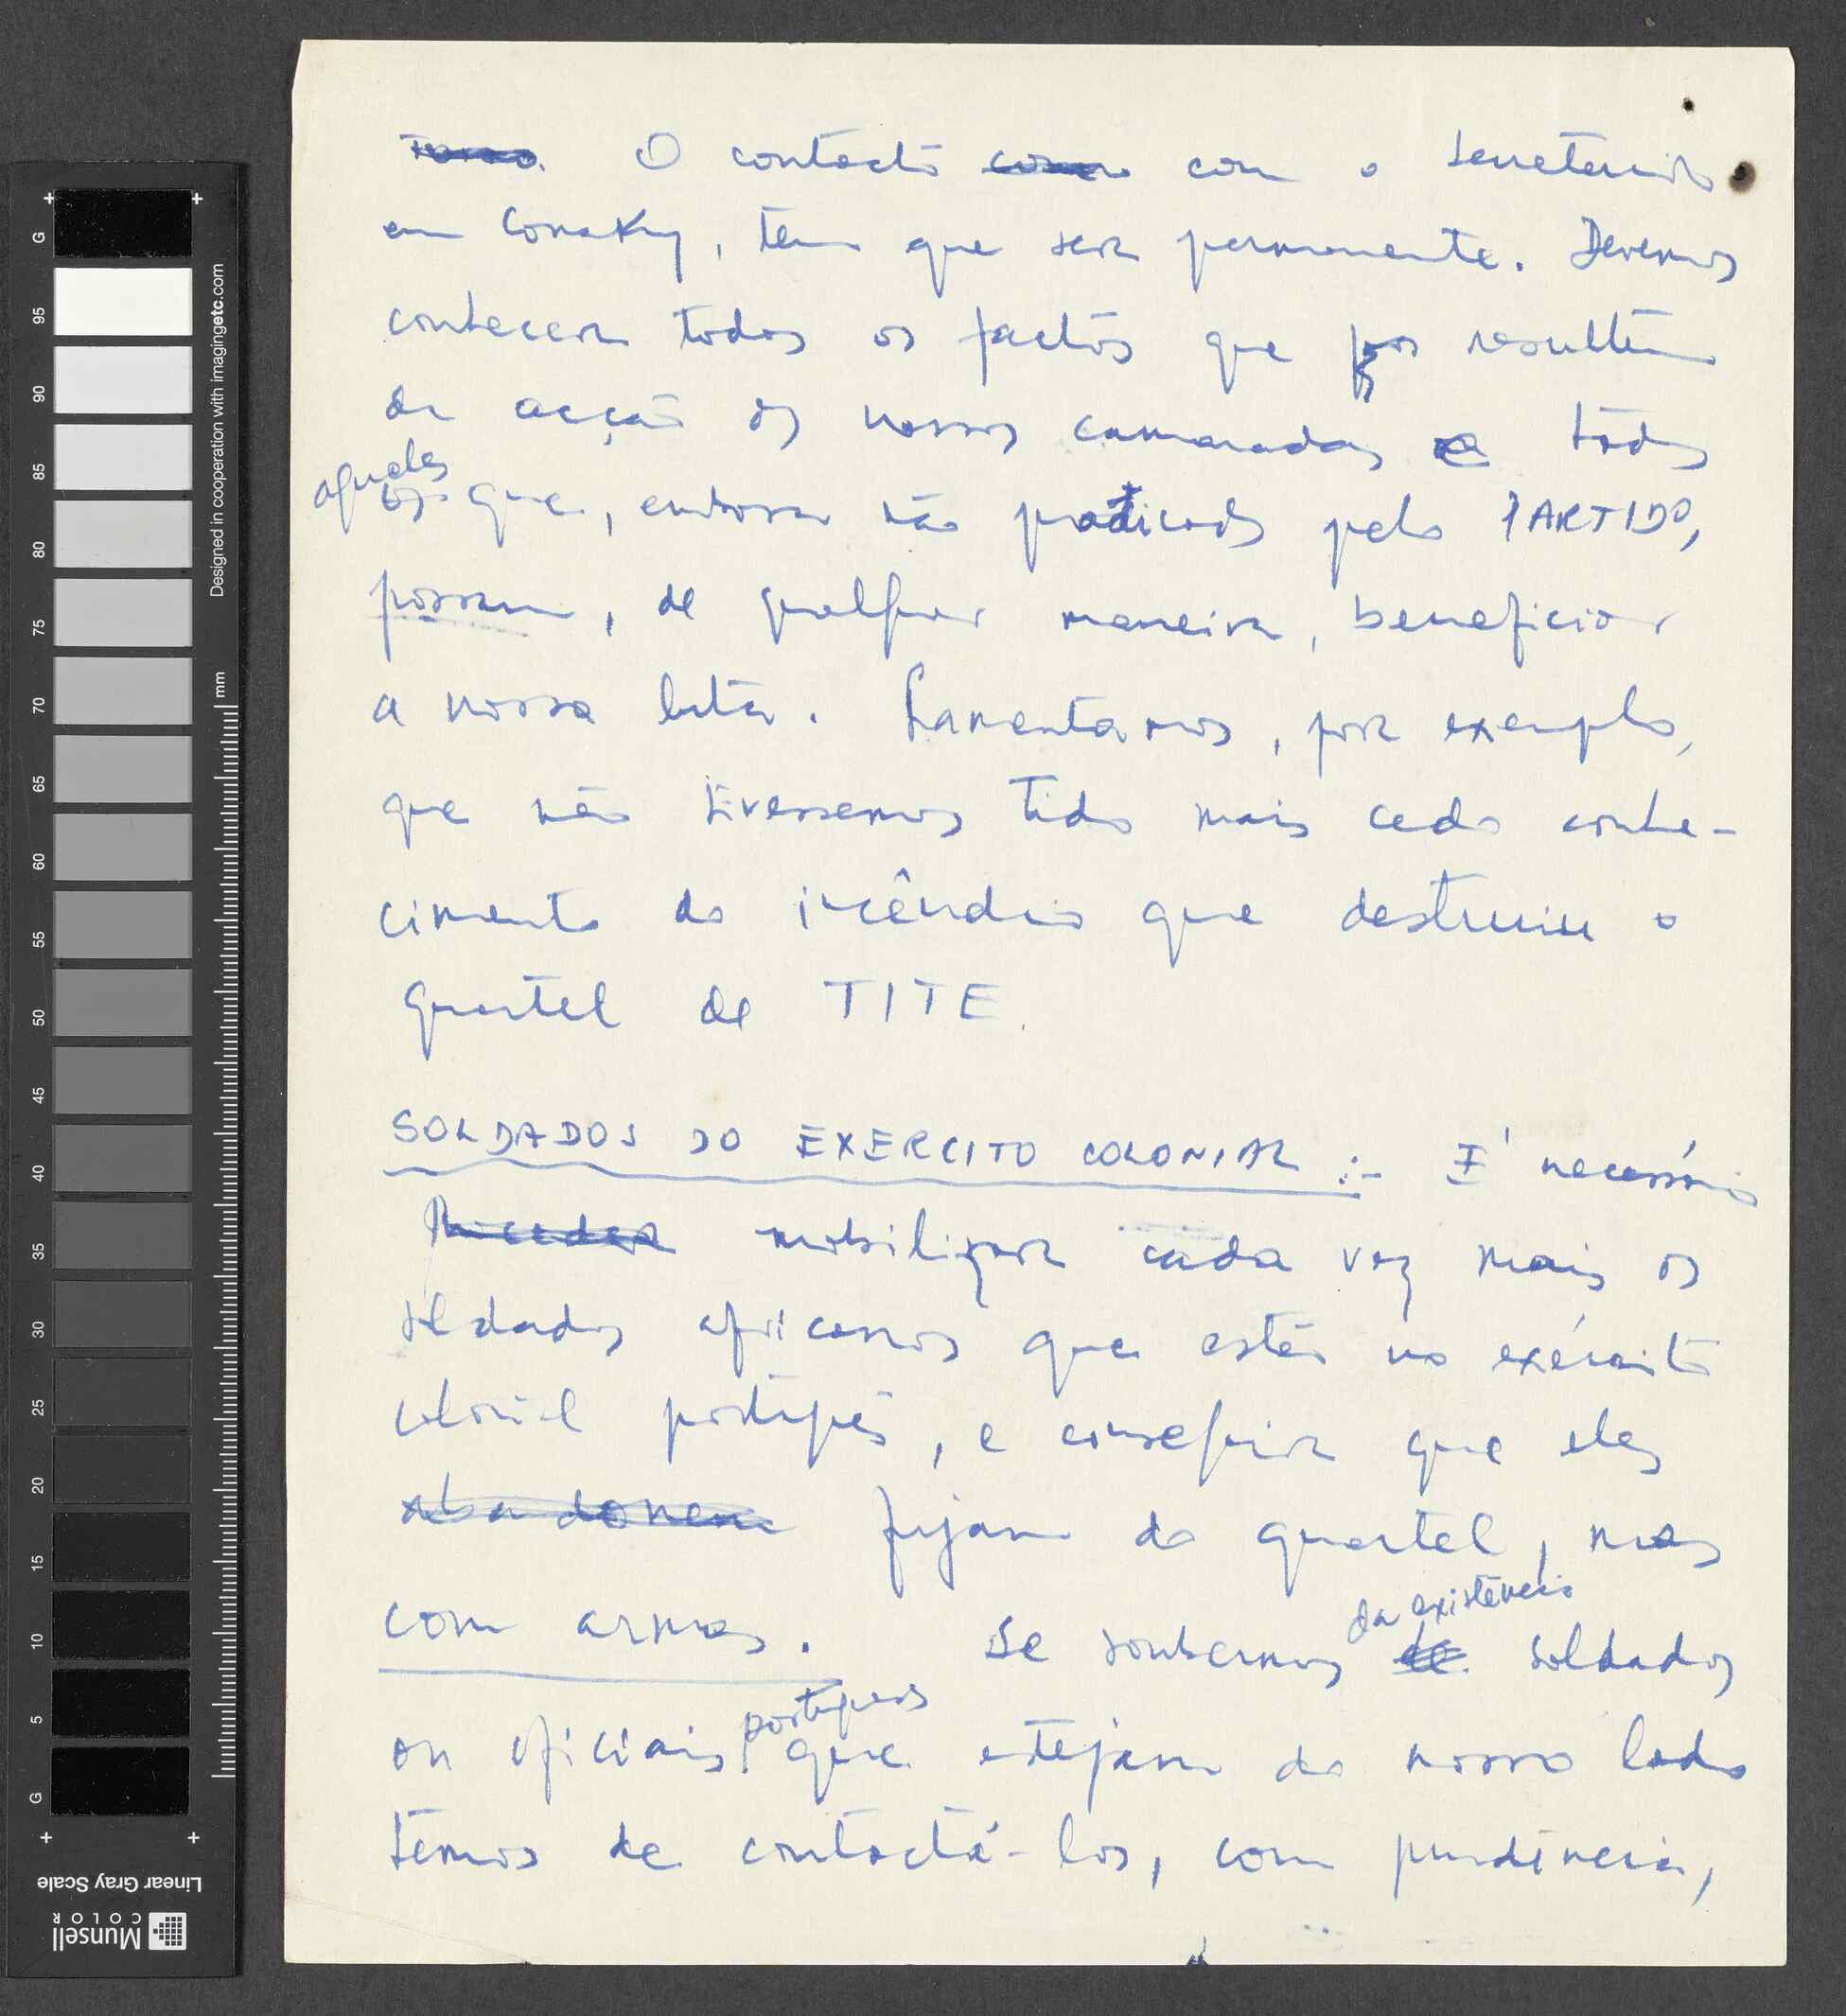 O contacto com o secretariado
em Conakry, tem que ser permanente. Devemos
conhecer todos os factos que resultem
da acção os nossos camaradas e todos
aqueles que, embora não praticados pelo PARTIDO,
possam, de qualquer maneira, beneficiar
a nossa luta. Lamentamos, por exemplo,
que não tivessemos tido mais cedo conhe-
cimento do incêndio que destruiu o
quartel de TITE.
SOLDADOS DO EXERCITO COLONIAL :- É necessário
mobilizar cada vez mais os
soldados africanos que estão no exército
colonial português, e conseguir que eles
abandonem fujam do quartel, mas
com armas. Se soubermos da existência soldados
ou oficiais portugueses que estejam do nosso lado
temos de contactá-los, com prudência,
G 95 90 85 80 75 70 65 60 55 50 45 40 35 30 25 20 15 10 5 G
mm
Designed in cooperation with imagingetc.com
Linear Gray Scale
Munsell
COLOR